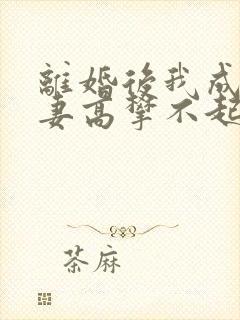 離婚後我成
妻高攀不起
茶麻